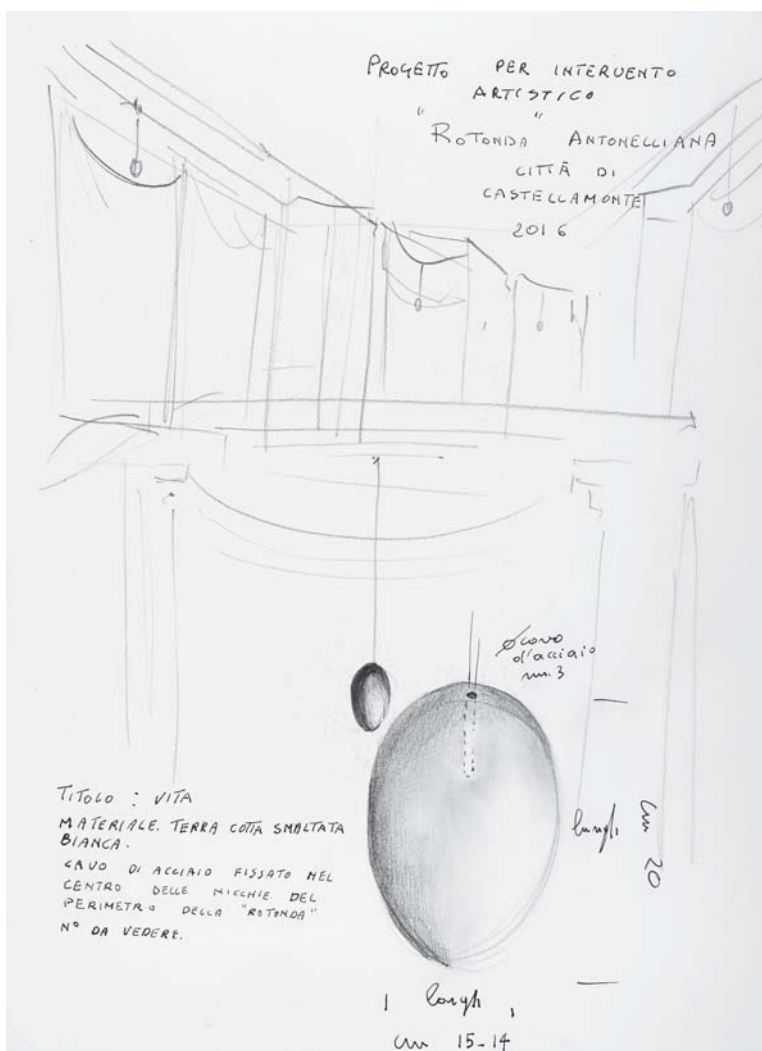 PROGETTO PER INTERVENTO
ARTISTICO
"ROTONDA ANTONELLIANA"
CITTÀ DI
CASTELLAMONTE
2016
Ø cavo
d'acciaio
mm. 3
TITOLO : VITA
MATERIALE. TERRA COTTA SMALTATA
BIANCA.
CAVO DI ACCIAIO FISSATO NEL
CENTRO DELLE NICCHIE DEL
PERIMETRO DELLA "ROTONDA"
N° DA VEDERE.
cm 20
cm 15-14